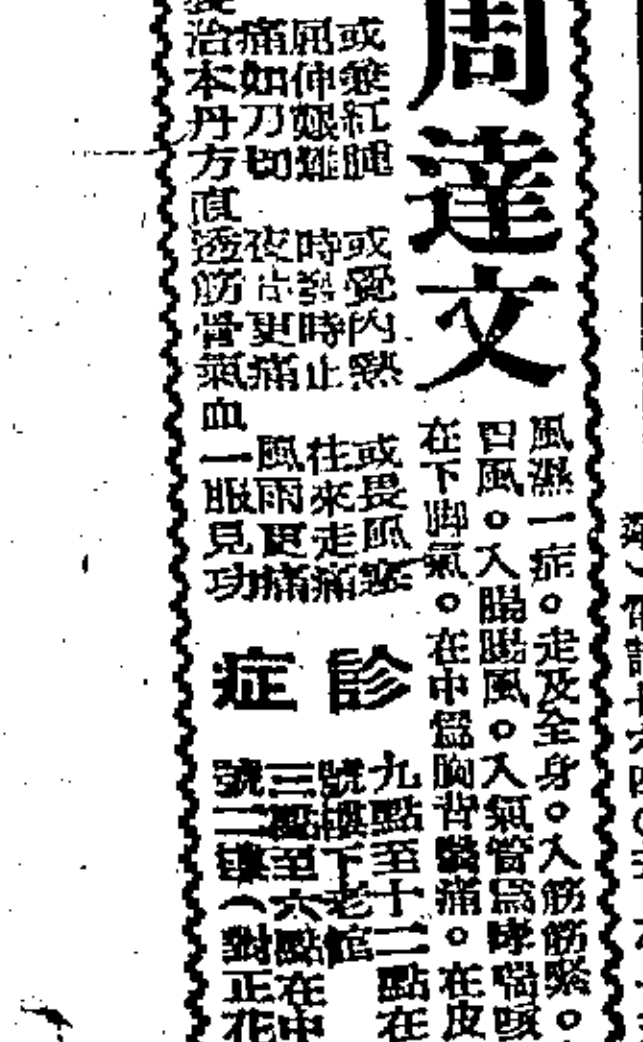 周達文
風濕一症。走及全身。入筋筋緊。
四風。入腸腸風。入氣管爲哮喘咳
在下脚氣。在中爲胸背緊痛。在皮
或兼紅腫 或覺內熱 或畏風寒
屈伸艱難 時發時止 往來走痛
痛如刀切 夜更痛 風雨更痛
治本丹方直透筋骨氣血一服見功
診症
九點至十二點在
號樓下老館
三點至六點在中
號二樓(對正花